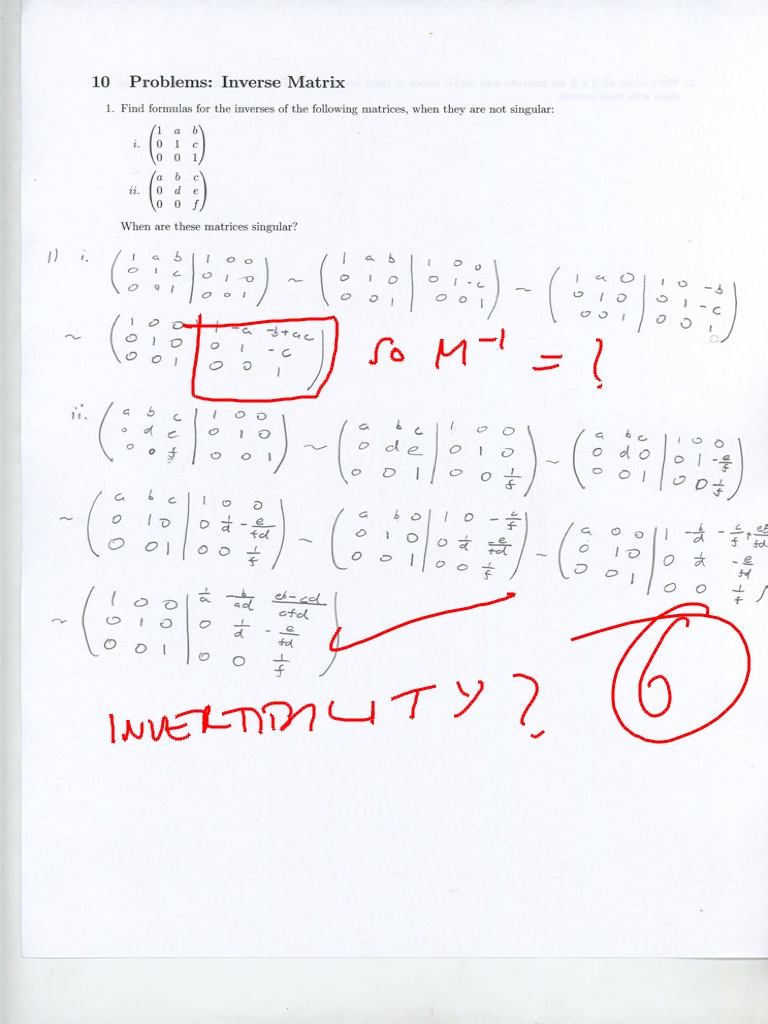 10 Problems: Inverse Matrix
1. Find formulas for the inverses of the following matrices, when they are not singular:
i. (1 a b
0 1 c
0 0 1)
ii. (a b c
0 d e
0 0 f)
When are these matrices singular?
1) i. (1 a b | 1 0 0
0 1 c | 0 1 0
0 0 1 | 0 0 1) ~ (1 a b | 1 0 0
0 1 0 | 0 1 -c
0 0 1 | 0 0 1) ~ (1 a 0 | 1 0 -b
0 1 0 | 0 1 -c
0 0 1 | 0 0 1)
~ (1 0 0 | 1 -a -b+ac
0 1 0 | 0 1 -c
0 0 1 | 0 0 1) so M⁻¹ = ?
ii. (a b c | 1 0 0
0 d e | 0 1 0
0 0 f | 0 0 1) ~ (a b c | 1 0 0
0 d e | 0 1 0
0 0 1 | 0 0 1/f) ~ (a b c | 1 0 0
0 d 0 | 0 1 -e/f
0 0 1 | 0 0 1/f)
~ (a b c | 1 0 0
0 1 0 | 0 1/d -e/fd
0 0 1 | 0 0 1/f) ~ (a b 0 | 1 0 -c/f
0 1 0 | 0 1/d -e/fd
0 0 1 | 0 0 1/f) ~ (a 0 0 | 1 -b/d -c/f+eb/fd
0 1 0 | 0 1/d -e/fd
0 0 1 | 0 0 1/f)
~ (1 0 0 | 1/a -b/ad eb-cd/afd
0 1 0 | 0 1/d -e/fd
0 0 1 | 0 0 1/f)
INVERTIBILITY?
6